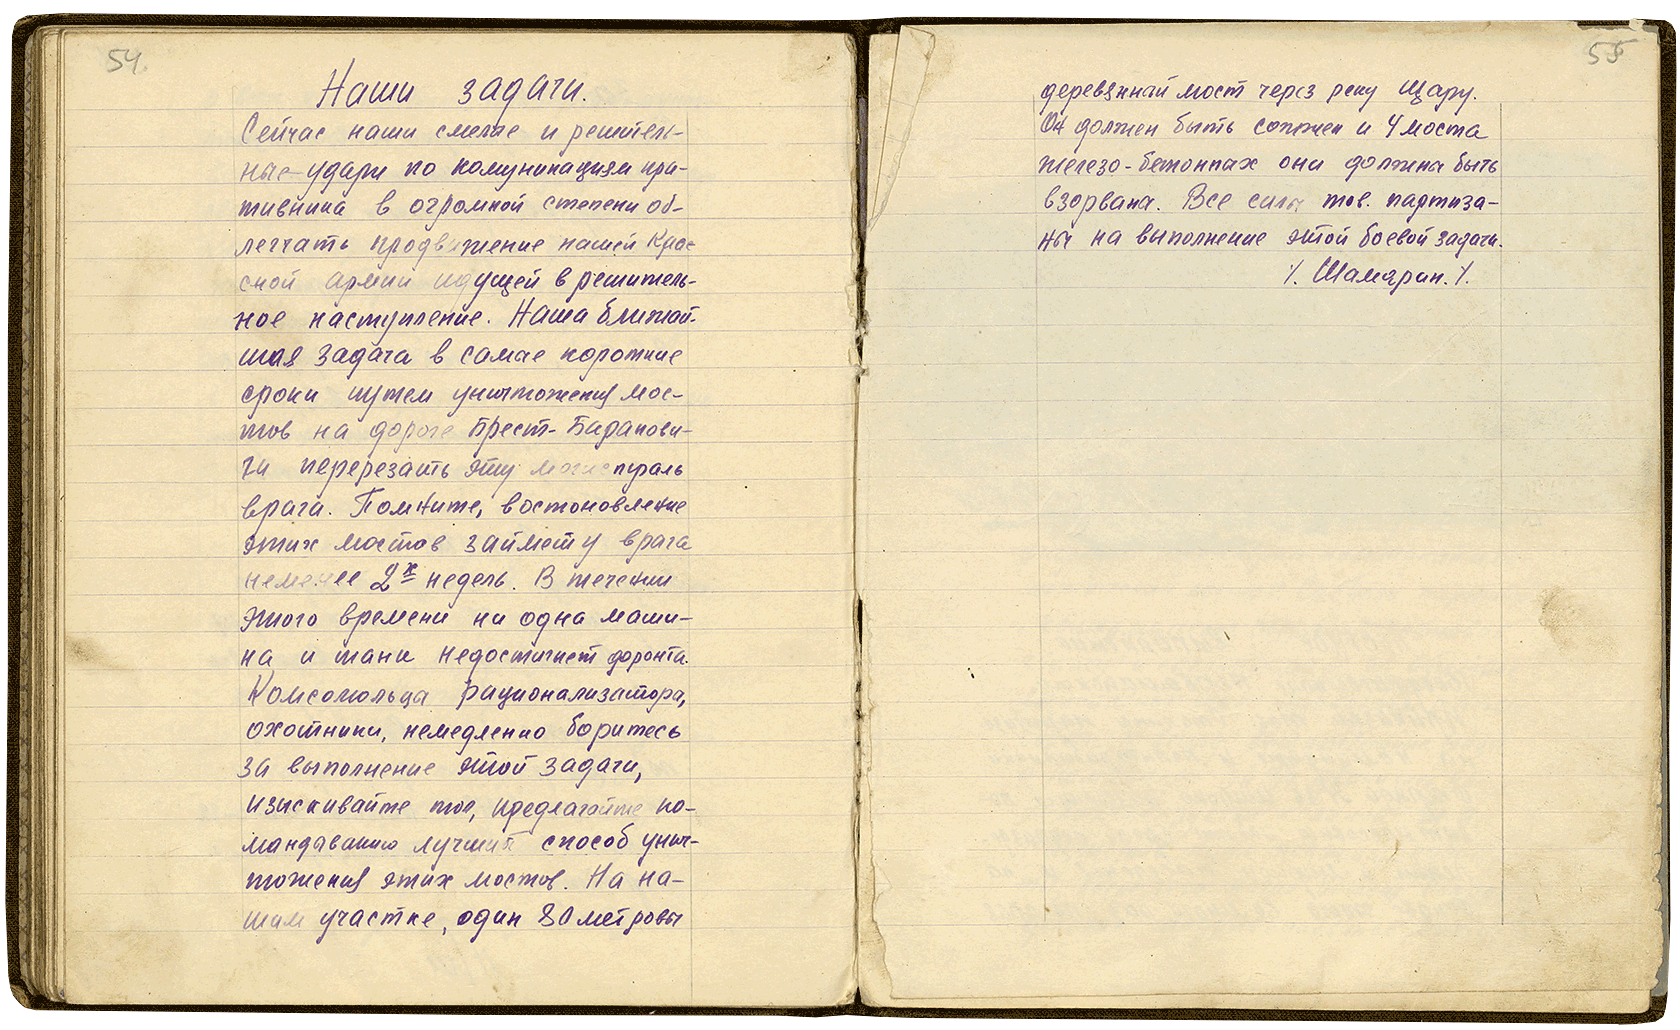 54.
Наши задачи.
Сейчас наши смелые и решитель-
ные удары по комуникациям про-
тивника в огромной степени об-
легчать продвижение нашей Крас
сной армии идущей в решитель-
ное наступление. Наша ближай-
шая задача в самые короткие
сроки путем уничтожения мос-
тов на дороге Брест-Баранови-
чи перерезать эту могистраль
врага. Помните, востоновление
этих мостов займет у врага
неменее 2х недель. В течении
этого времени ни одна маши-
на и танк недостигнет фронта.
Комсомольцы рационализаторы,
охотники, немедленно боритесь
за выполнение этой задачи,
изыскивайте тол, предлагайте ко-
мандованию лучший способ унич-
тожения этих мостов. На на-
шим участке, один 80 метровы
55
деревянный мост через реку Щару.
Он должен быть сожжен и 4 моста
железо-бетонных они должны быть
взорваны. Все силы тов. партиза-
ны на выполнение этой боевой задачи.
/. Шамярин. /.